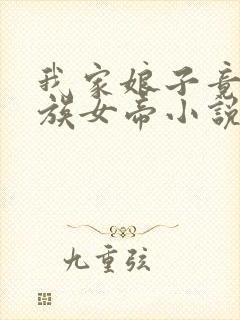 我家娘子竟
族女帝小説
九重弦